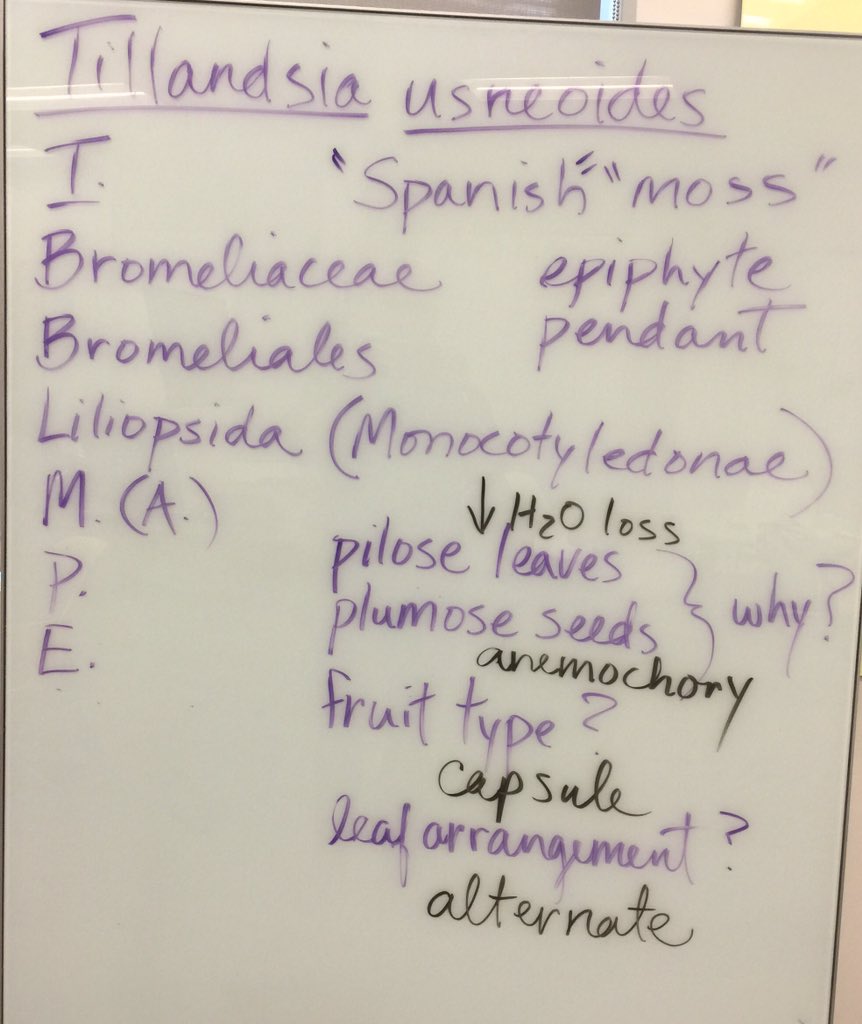 Tillandsia usneoides
T. "Spanish" "moss"
Bromeliaceae epiphyte
Bromeliales pendant
Liliopsida (Monocotyledonae)
M. (A.) ↓ H₂O loss
pilose leaves } why?
P. plumose seeds
E. anemochory
fruit type?
capsule
leaf arrangement?
alternate